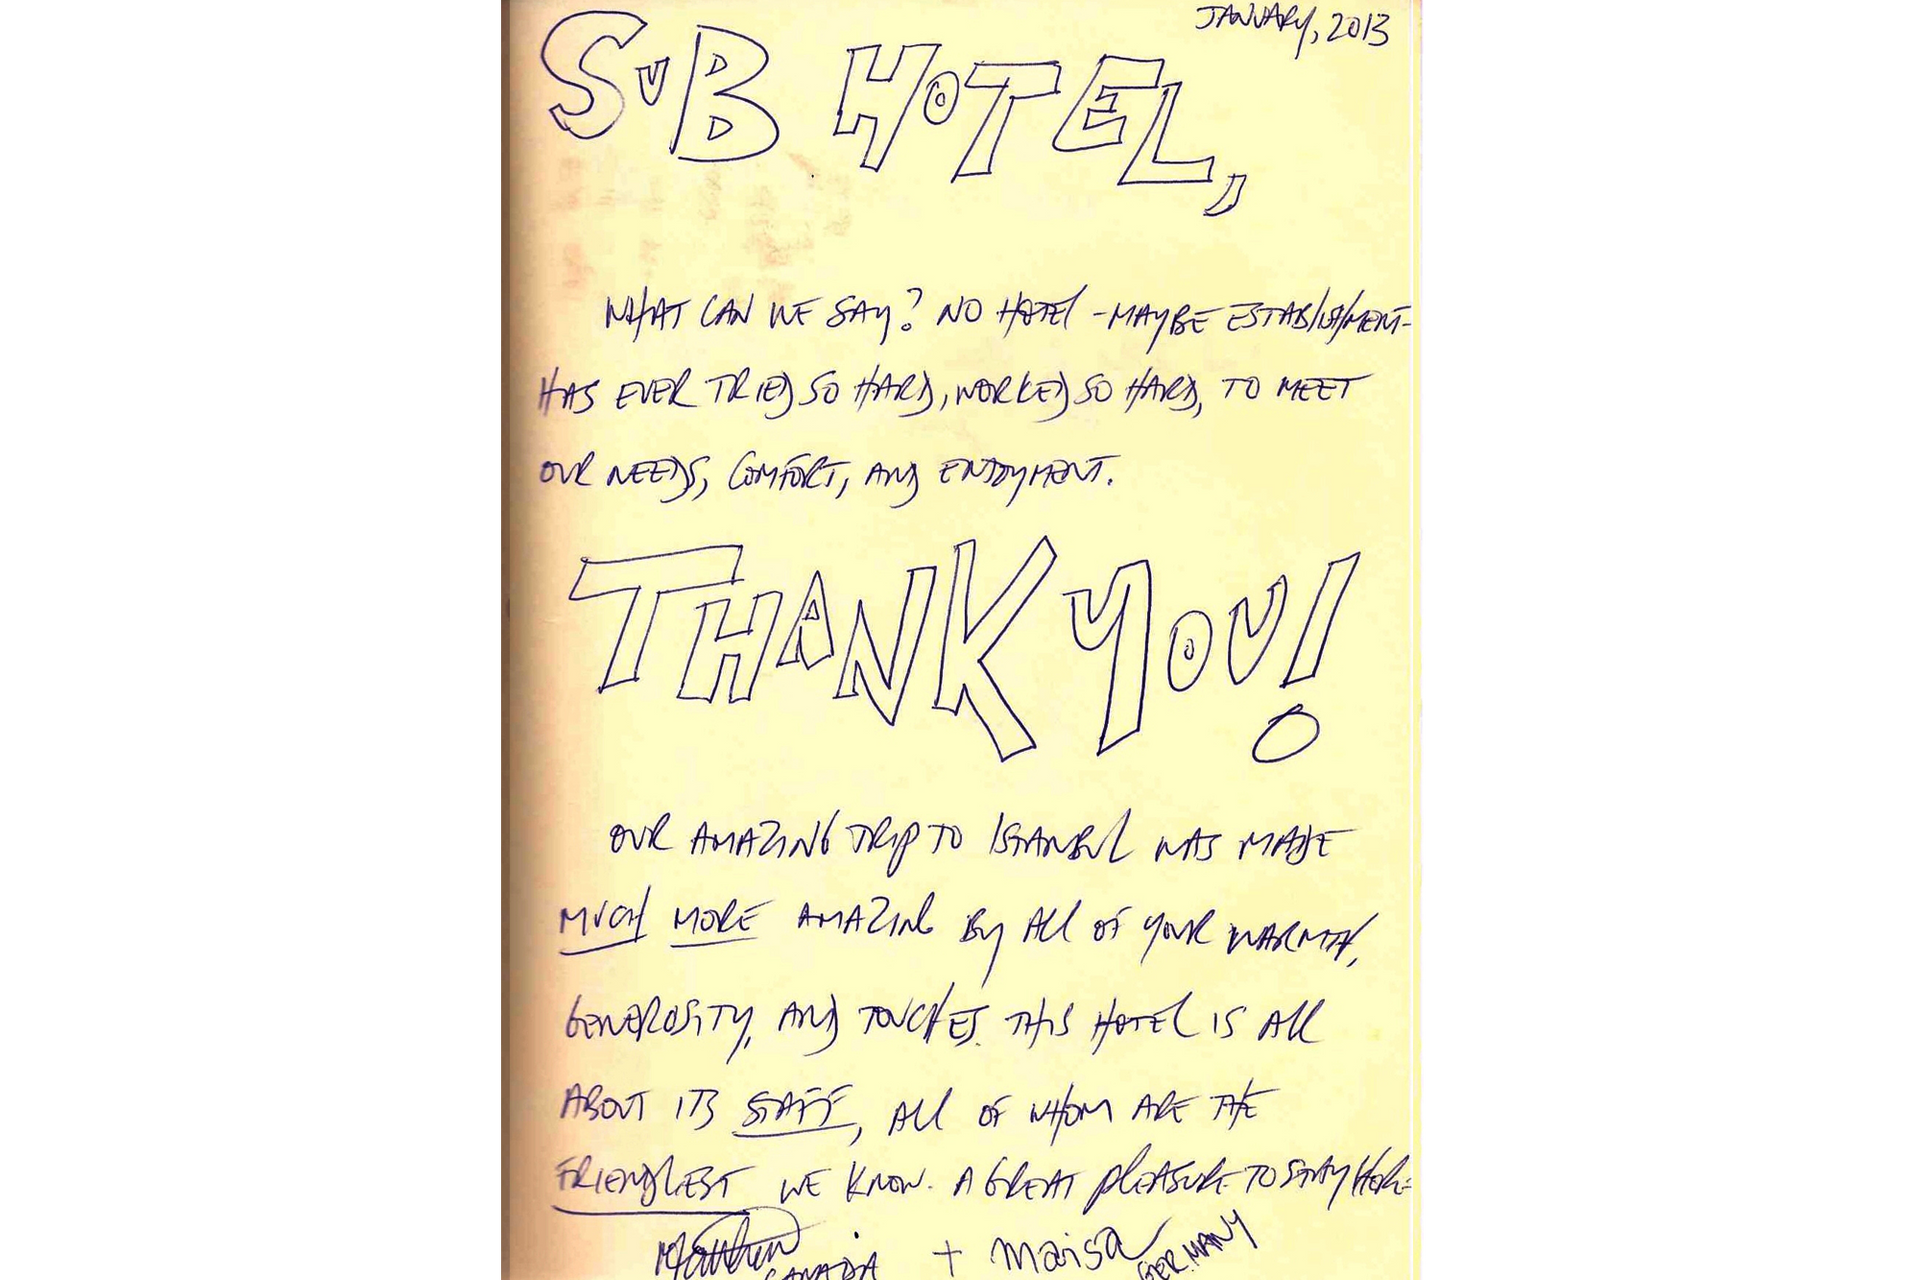 JANUARY, 2013
SUB HOTEL,
WHAT CAN WE SAY? NO HOTEL - MAYBE ESTABLISHMENT -
HAS EVER TRIED SO HARD, WORKED SO HARD, TO MEET
OUR NEEDS, COMFORT, AND ENJOYMENT.
THANK YOU!
OUR AMAZING TRIP TO ISTANBUL WAS MADE
MUCH MORE AMAZING BY ALL OF YOUR WARMTH,
GENEROSITY, AND TOUCHES. THIS HOTEL IS ALL
ABOUT ITS STAFF, ALL OF WHOM ARE THE
FRIENDLIEST WE KNOW. A GREAT PLEASURE TO STAY HERE.
Matthew CANADA + Maisa GERMANY